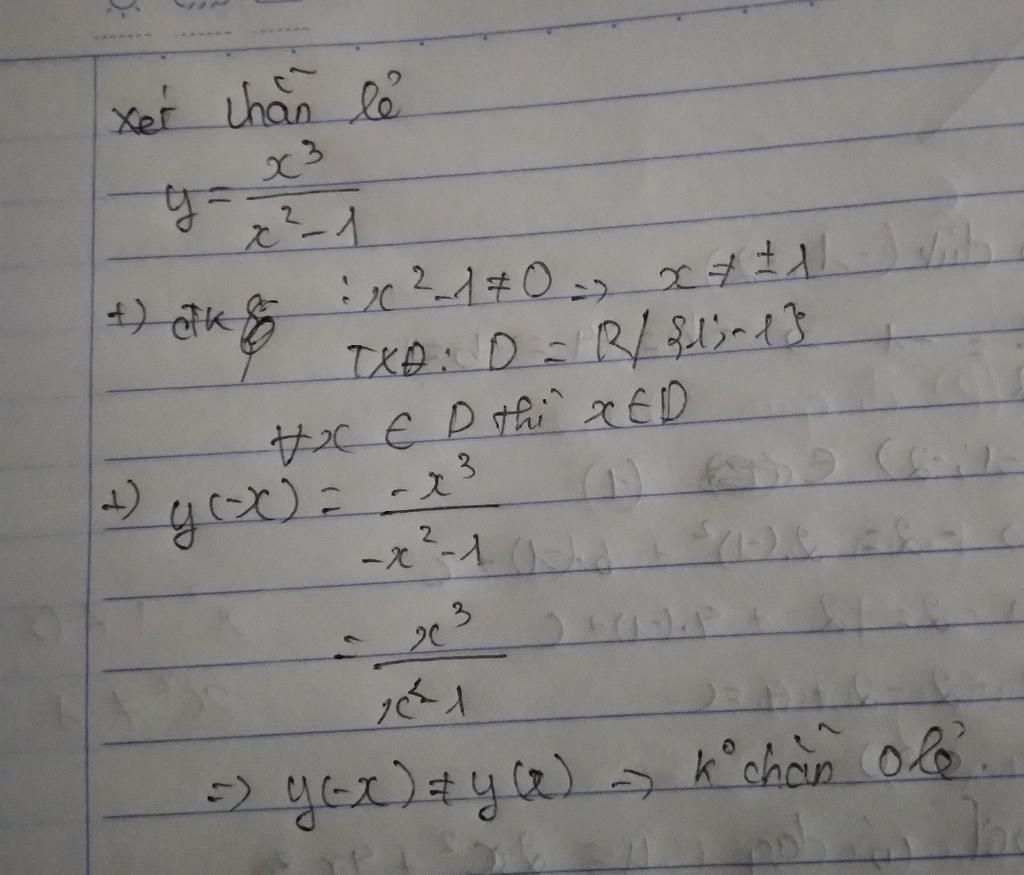 xét chẵn lẻ
y = x³ / x² - 1
+) đk : x² - 1 ≠ 0 => x ≠ ± 1
TXĐ: D = R/ {1; -1}
∀x ∈ D thì x ∈ D
+) y(-x) = -x³ / -x² - 1
= x³ / x² - 1
=> y(-x) ≠ y(x) => k° chẵn 0 lẻ.